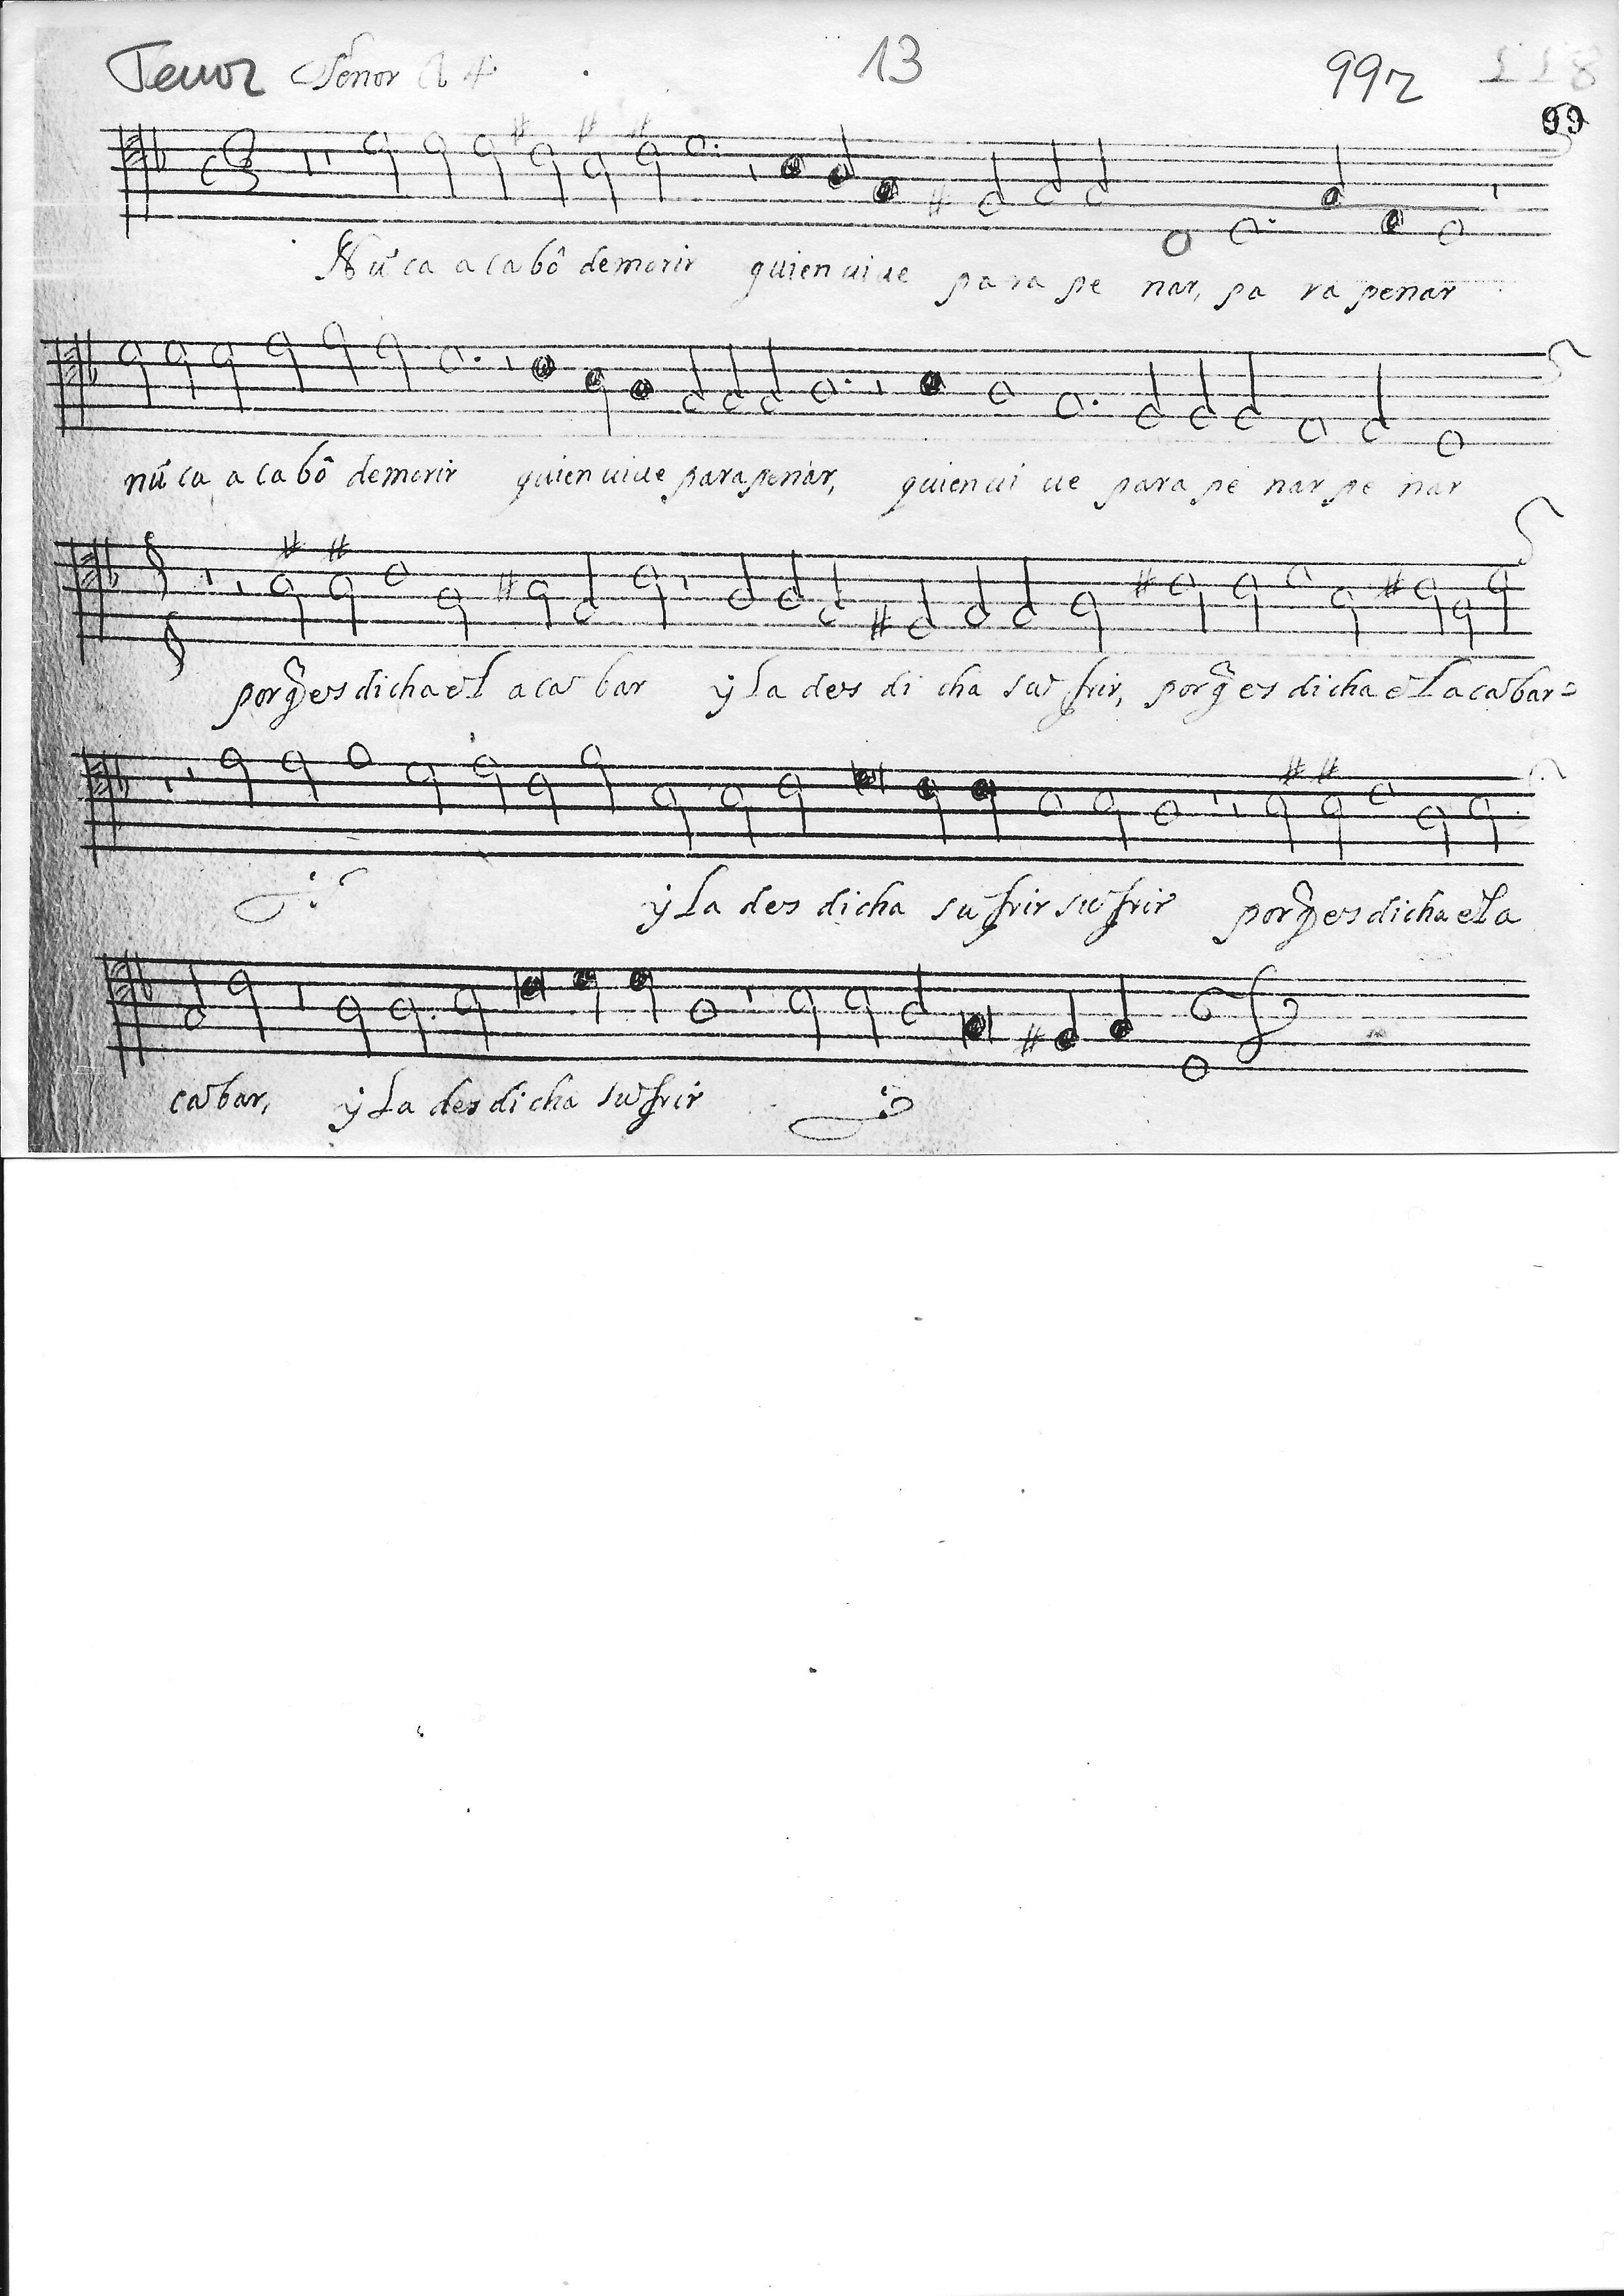 Tenor Tenor A 4. 13 99r 118
99
Nũca acabô demorir quien uiue para penar, para penar
nũca acabô demorir quien uiue para penar, quien uiue para penar penar
porq̃ es dicha el acabar y la desdicha sufrir, porq̃ es dicha el acabar
y la desdicha sufrir sufrir porq̃ es dicha el a
cabar, y la desdicha sufrir